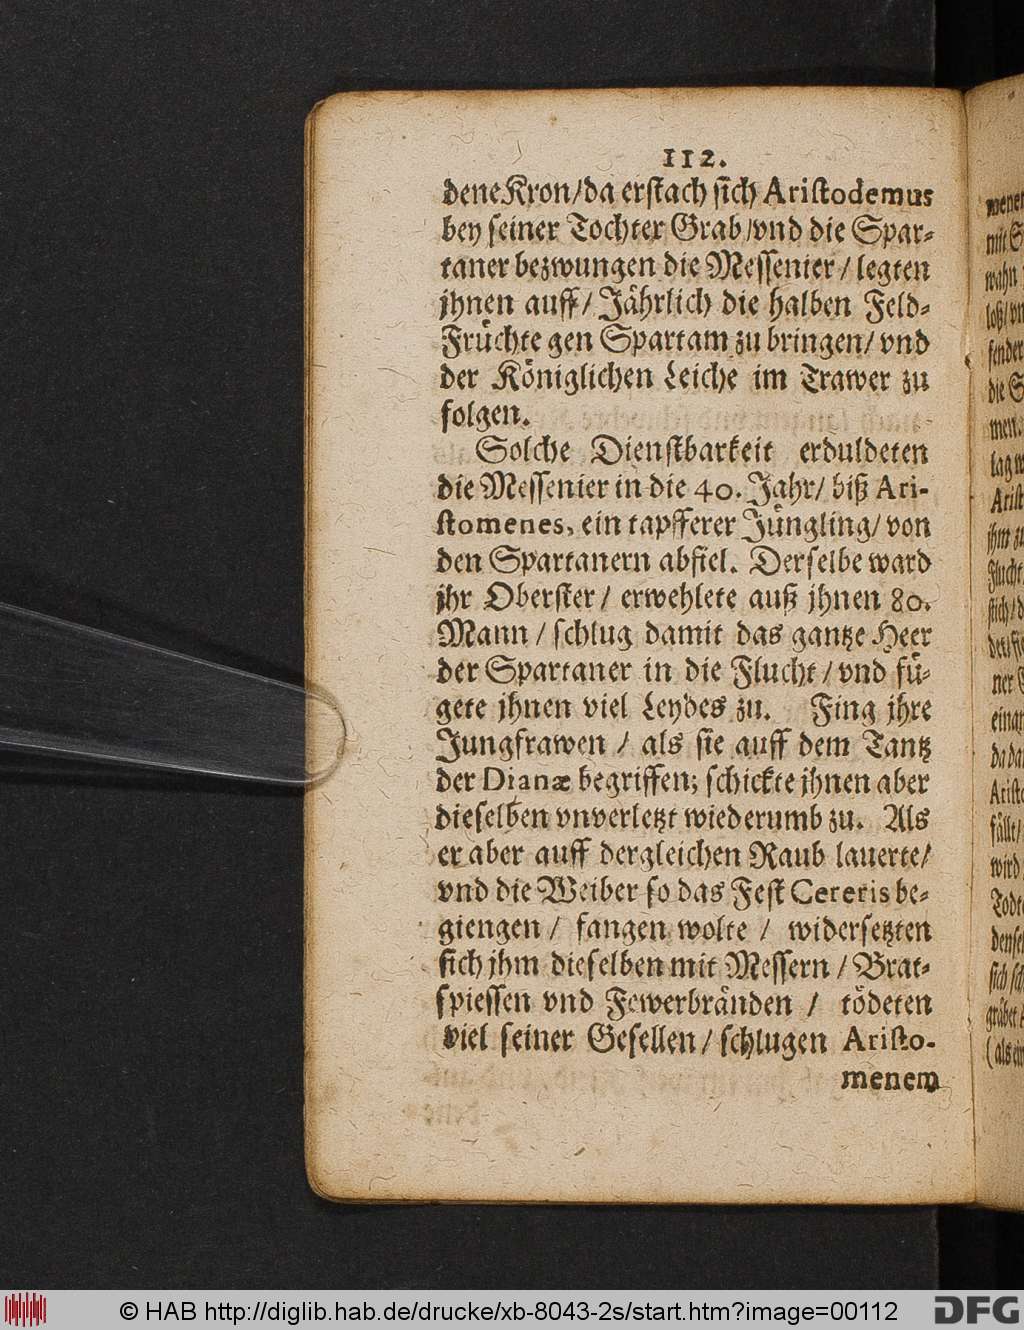 112.
dene Kron/da erstach sich Aristodemus
bey seiner Tochter Grab/vnd die Spar-
taner bezwungen die Messenier / legten
jhnen auff/ Jährlich die halben Feld-
Früchte gen Spartam zu bringen/ vnd
der Königlichen Leiche im Trawer zu
folgen.
Solche Dienstbarkeit erduldeten
die Messenier in die 40. Jahr/ biß Ari-
stomenes, ein tapfferer Jüngling/ von
den Spartanern abfiel. Derselbe ward
jhr Oberster / erwehlete auß jhnen 80.
Mann / schlug damit das gantze Heer
der Spartaner in die Flucht / vnd fü-
gete jhnen viel Leydes zu. Fing jhre
Jungfrawen / als sie auff dem Tantz
der Dianæ begriffen; schickte jhnen aber
dieselben vnverletzt wiederumb zu. Als
er aber auff dergleichen Raub lauerte/
vnd die Weiber so das Fest Cereris be-
giengen / fangen wolte / widersetzten
sich jhm dieselben mit Messern / Brat-
spiessen vnd Fewerbränden / tödeten
viel seiner Gesellen / schlugen Aristo-
menem
mit S
wahn
die S
men.
Arist
Flucht
ner
Aristo
fällt/
wird
Todte
© HAB http://diglib.hab.de/drucke/xb-8043-2s/start.htm?image=00112
DFG